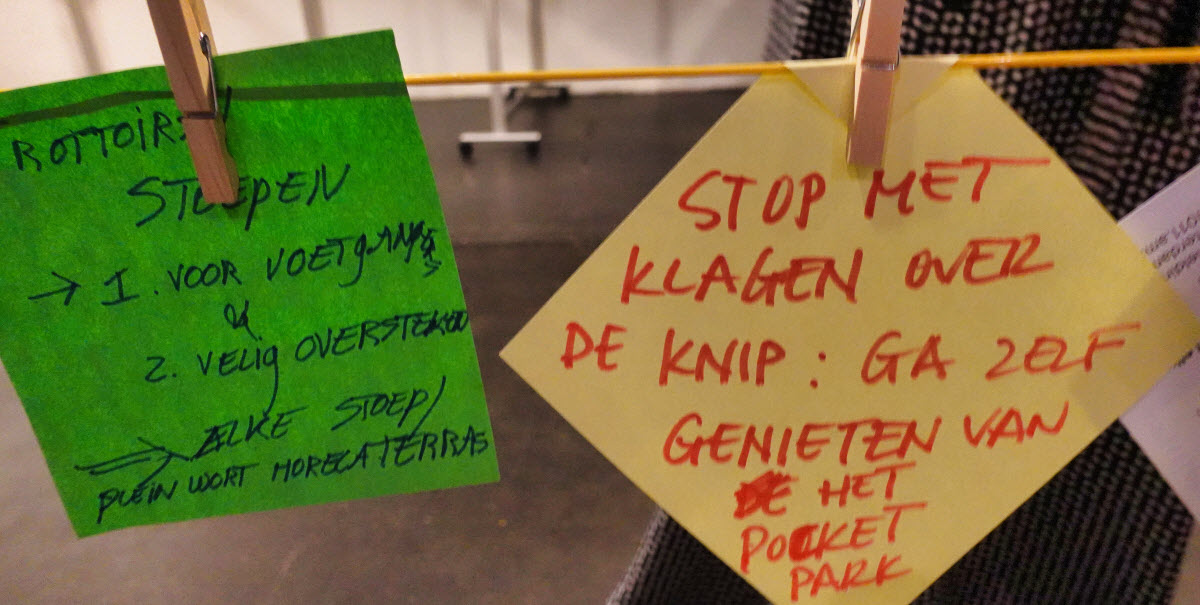 ROTTOIRS/
STOEPEN
→ 1. VOOR VOETgANgERS
&
2. VELIg OVERSTEKEN
⇒ ELKE STOEP/
PLEIN WORT HORECATERRAS
STOP MET
KLAGEN OVER
DE KNIP : GA ZELF
GENIETEN VAN
DE HET
POCKET
PARK